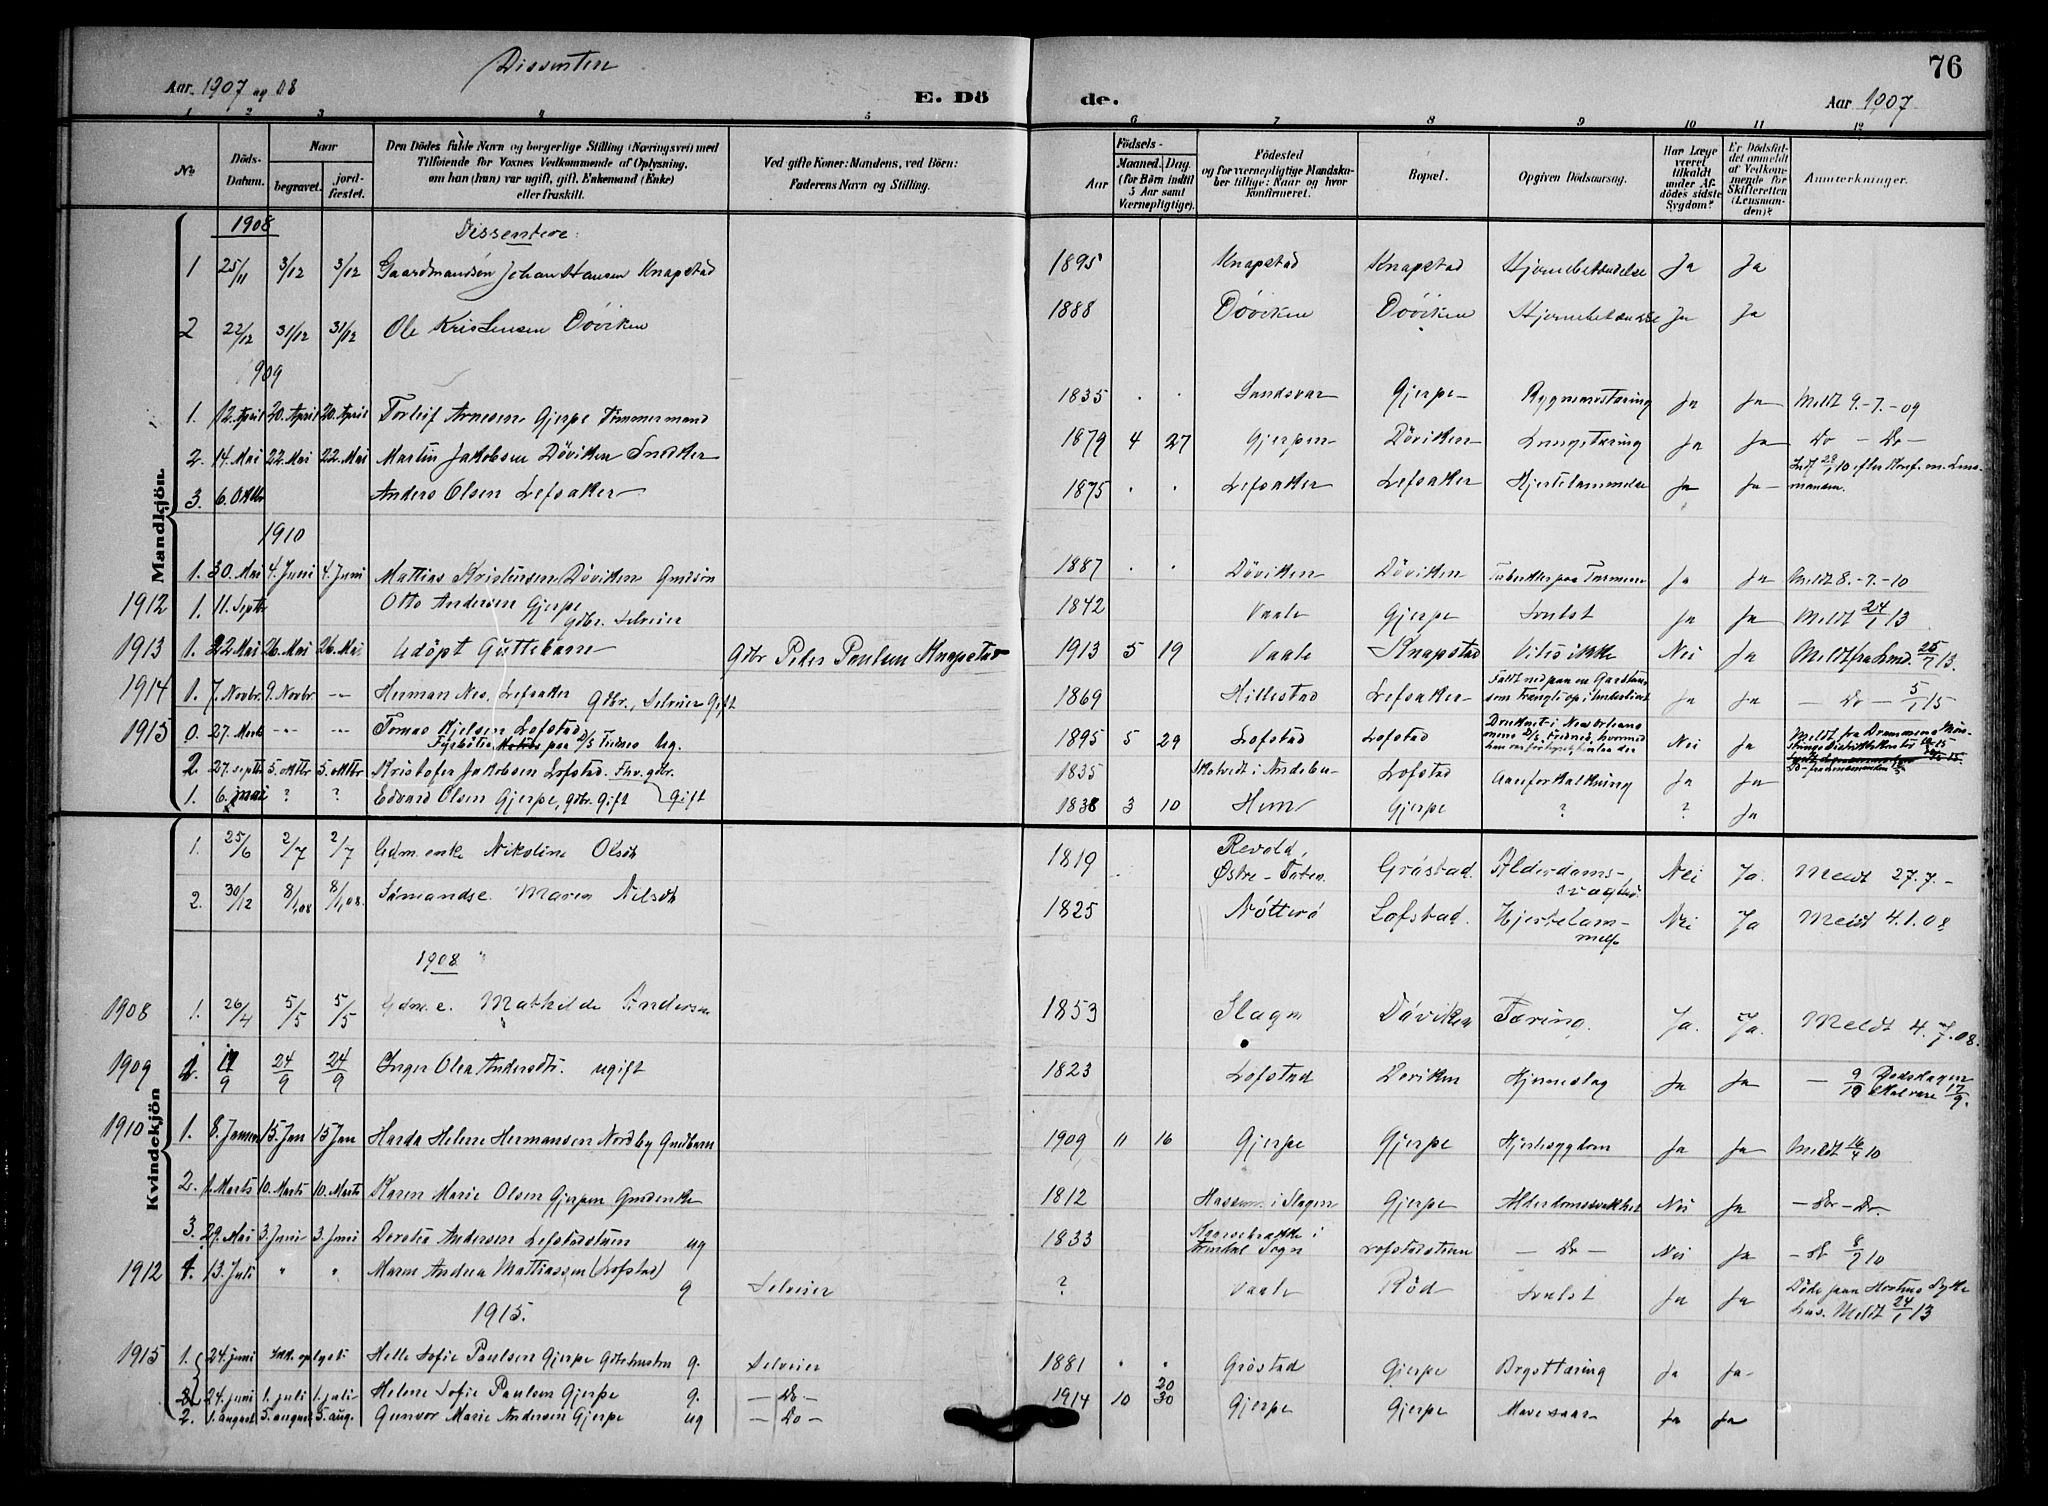 Dissentere
76
Aar 1907 og 08
E. Döde.
Aar 1907
1 2 3 4 5 6 7 8 9 10 11 12
No.
Döds-Datum.
Naar
begravet.
jordfæstet.
Den Dödes fulde Navn og borgerlige Stilling (Næringsvei) med Tilföiende for Voxnes Vedkommende af Oplysning, om han (hun) var ugift, gift, Enkemand (Enke) eller fraskilt.
Ved gifte Koner: Mandens, ved Börn: Faderens Navn og Stilling.
Aar
Födsels-
Maaned. Dag.
(for Börn indtil 5 Aar samt Værnepligtige).
Födested og for værnepligtige Mandskaber tillige: Naar og hvor konfirmeret.
Bopæl.
Opgiven Dödsaarsag.
Har Læge været tilkaldt under Afdödes sidste Sygdom?
Er Dödsfaldet anmeldt af Vedkommende for Skifteretten (Lensmanden)?
Anmærkninger.
Mandkjön.
1908 Dissentere:
1 25/11 3/12 3/12 Gaardmandsön Johan Hansen Knapstad 1895 Knapstad Knapstad Hjernebetændelse Ja Ja
2 22/12 31/12 31/12 Ole Kristensen Döviken 1888 Döviken Döviken Hjernebetændelse Ja Ja
1909
1. 12. April 20. April 20. April Torleif Arnesen Gjerpe Tömmermand 1835 . . Sandsvær Gjerpe Rygmarvstæring Ja Ja Meldt 9.-7.-09
2. 14. Mai 22. Mai 22. Mai Martin Jakobsen Döviken Snekker 1879 4 27 Gjerpen Döviken Lungetæring Ja Ja Do — Do —
3. 6. Oktbr Anders Olsen Lefsaker 1875 . . Lefsaker Lefsaker Hjertelammelse Ja Ja Indf 29/1 10 efter Konf. m. Lensmanden.
1910
1. 30. Mai 4. Juni 4. Juni Mattias Kristensen Döviken Gmdsön 1887 . . Döviken Döviken Tuberkler paa Tarmene Ja Ja Meldt 8.-7.-10
1912 1. 11. Septbr Otto Andersen Gjerpe Gdbr. Selveier 1842 Vaale Gjerpe Svulst Ja Ja Meldt 24/1 13
1913 1. 22 Mai 26. Mai 26. Mai Udöpt Guttebarn Gdbr Peter Paulsen Knapstad 1913 5 19 Vaale Knapstad Vites ikke Nei Ja Meldt fra Lmd. 25/7 13.
1914 1. 7. Novbr. 9. Novbr. -"- Herman Nes. Lefsaker Gdbr., Selveier Gift 1869 Hillestad Lefsaker Faldt ned paa en Gardstaur som trængte op i Underlivet Ja Ja — Do — 5/1 15
1915 0. 27. Marts -"- -"- Tomas Kjelsen Lofstad Fyrböter paa D/S Ug. 1895 5 29 Lofstad Lofstad Druknet i New Orleans Nei Ja Meldt fra Drammens Mönstringsdistrikt
2. 27. septbr 5. oktbr 5. oktbr Kristofer Jakobsen Lofstad. Fhv. gdbr. Gift 1835 Skatvedt i Andebu Lofstad Aareforkalkning Ja Ja
1. 6. mai ? ? Edvard Olsen Gjerpe, gdbr. Gift 1838 3 10 Hem Gjerpe ? ? Ja
Kvindekjön
1. 25/6 2/7 2/7 Gdm. enke Nikoline Olsdt 1819 Revold, Østre-Toten Gröstad. Alderdomssvaghed. Nei Ja. Meldt 27.7.—
2. 30/12 8/1 08 8/1 08. Sömandse. Maren Nilsdt 1825 Nötterö Lofstad. Hjertelammelse Nei Ja Meldt 4.1.08
1908
1908 1. 26/4 5/5 5/5 Gdm. e. Mathilde Andersen 1853 Slagn Döviken Tæring. Ja. Ja. Meldt 4./7.08.
1909 1. 17/9 24/9 24/9 Inger Olea Andersdt. ugift 1823 Lofstad Döviken Hjerneslag Ja Ja — 9/10 Dödsdagen skal være 17/9.
1910 1. 8. Januar 15. Jan 15 Jan Harda Helene Hermansen Nordby Gmdbarn 1909 11 16 Gjerpe Gjerpe Hjertesygdom Ja Ja Meldt 16/4 10
2. 1. Marts 10. Marts 10. Marts Karen Marie Olsen Gjerpen Gmdenke 1812 Hassum i Slagen Gjerpe Alderdomssvakhet Nei Ja — Do — Do.
3. 29. Mai 3. Juni 3. Juni Dorotea Andersen Lefstadstuen ug 1833 Sogn Lofstadstuen — Do — Nei Ja — Do 8/7 10
1912 1. 13. Juli " " Maren Andrea Mattiassen (Lofstad) g Selveier ? Vaale Röd Svulst Ja Ja Döde paa Hortens Sykehus. Meldt 24/1 13
1915.
1915 1. 24. juni Ikk. oplyst Helle Sofie Paulsen Gjerpe Gdbrhustru g. Selveier 1881 " " Gröstad Gjerpe Brysttæring Ja Ja
24. juni 1. juli 1. juli Helene Sofie Paulsen Gjerpe g. — Do —
2. 1. august 5. august 5. aug. Gunvor Marie Andersen Gjerpe ug — Do — 1914 10 20 30 Gjerpe Gjerpe Mavesaar Ja Ja